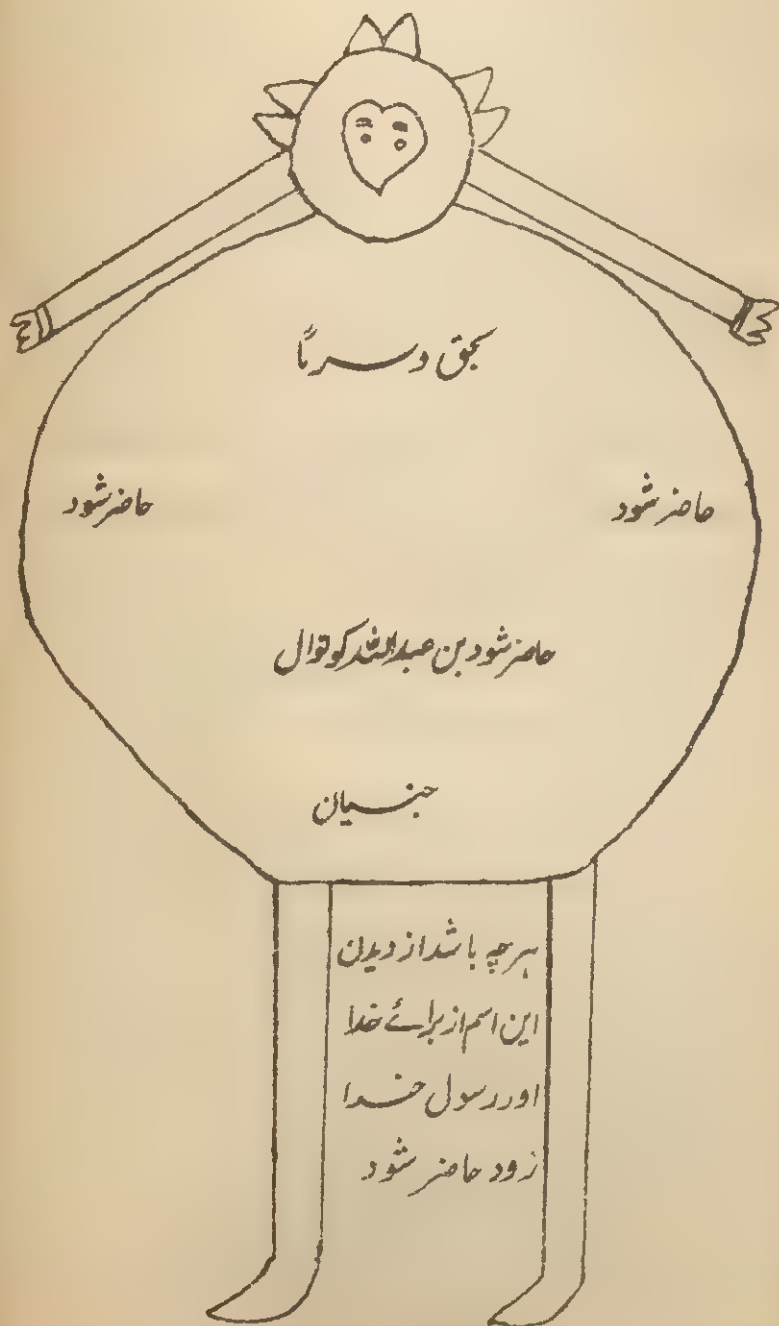 بحق دسرنًا
حاضر شود
حاضر شود
حاضر شود بن عبداللہ کوتوال
جنسیان
ہر چہ باشد از دیدن
این اسم از برائے خدا
اور رسول خدا
زود حاضر شود